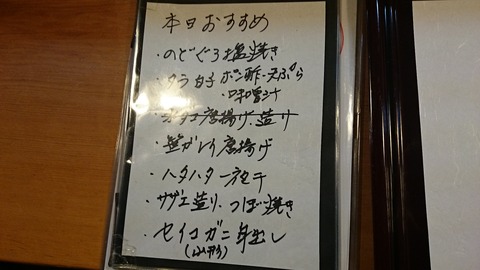 本日おすすめ
・のどぐろ塩焼き
・タラ白子ポン酢・天ぷら
・味噌汁
唐揚げ・造り
・笹がれい唐揚げ
・ハタハタ一夜干
・サザエ造り・つぼ焼き
・セイコガニ身出し
(山形)